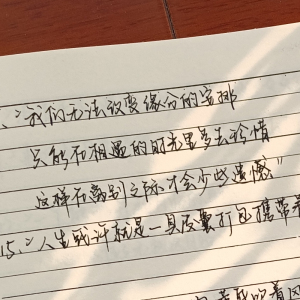 、“我们无法改变缘分的安排
只能在相遇的时光里多去珍惜
这样在离别之际才会少些遗憾”
15、“人生或许就是一具皮囊打包携带着